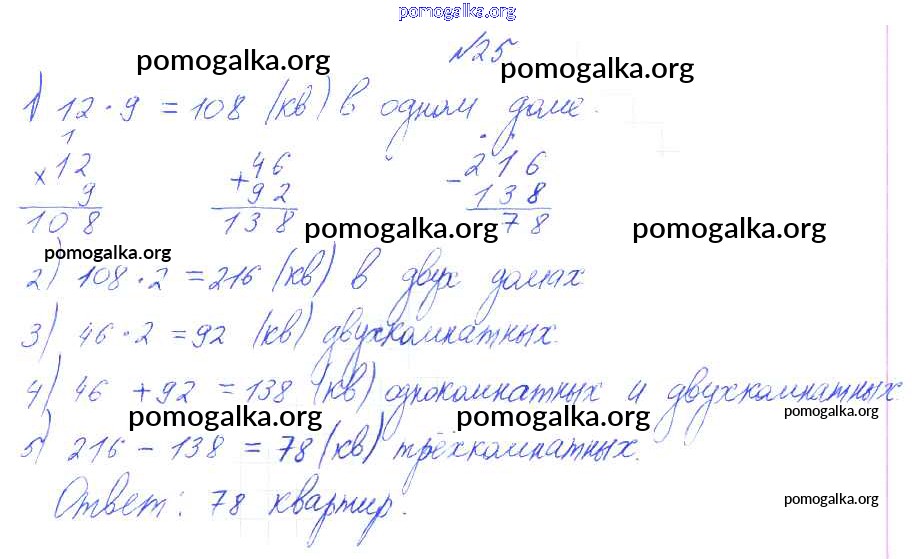 pomogalka.org
№25
pomogalka.org pomogalka.org
1) 12 · 9 = 108 (кв) в одном доме.
1
× 12 + 46 - 216
9 92 138
108 138 78
pomogalka.org pomogalka.org
pomogalka.org
2) 108 · 2 = 216 (кв) в двух домах
3) 46 · 2 = 92 (кв) двухкомнатных.
4) 46 + 92 = 138 (кв) однокомнатных и двухкомнатных.
pomogalka.org pomogalka.org pomogalka.org
5) 216 - 138 = 78 (кв) трёхкомнатных.
Ответ: 78 квартир.
pomogalka.org